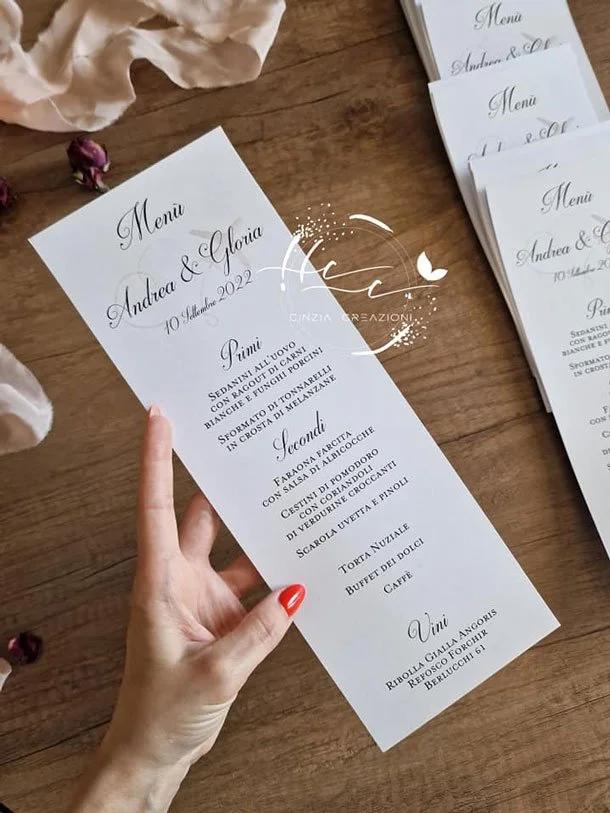 Menù
Andrea & Gloria
10 Settembre 2022
Primi
Sedanini all'uovo
con ragout di carni
bianche e funghi porcini
Sformato di tonnarelli
in crosta di melanzane
Secondi
Faraona farcita
con salsa di albicocche
Cestini di pomodoro
con coriandoli
di verdurine croccanti
Scarola uvetta e pinoli
Torta Nuziale
Buffet dei dolci
Caffè
Vini
Ribolla Gialla Angoris
Refosco Forchir
Berlucchi 61
CINZIA CREAZIONI
Menù
Andrea &
Menù
Menù
Andrea & G
10 Settembre
Pri
Sedanini
con ragout
bianche e fu
Sformato
in crosta